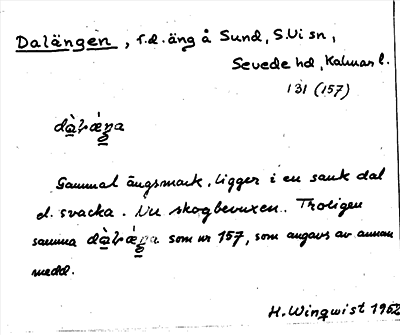 Dalängen, f.d. äng å Sund, S.Vi sn,
Sevede hd, Kalmar l.
131 (157)
dàɫǽŋa
Gammal ängsmark, ligger i en sank dal
el. svacka. Nu skogbevuxen. Troligen
samma dàɫǽŋa som nr 157, som angavs av annan
medd.
H. Winqwist 1962